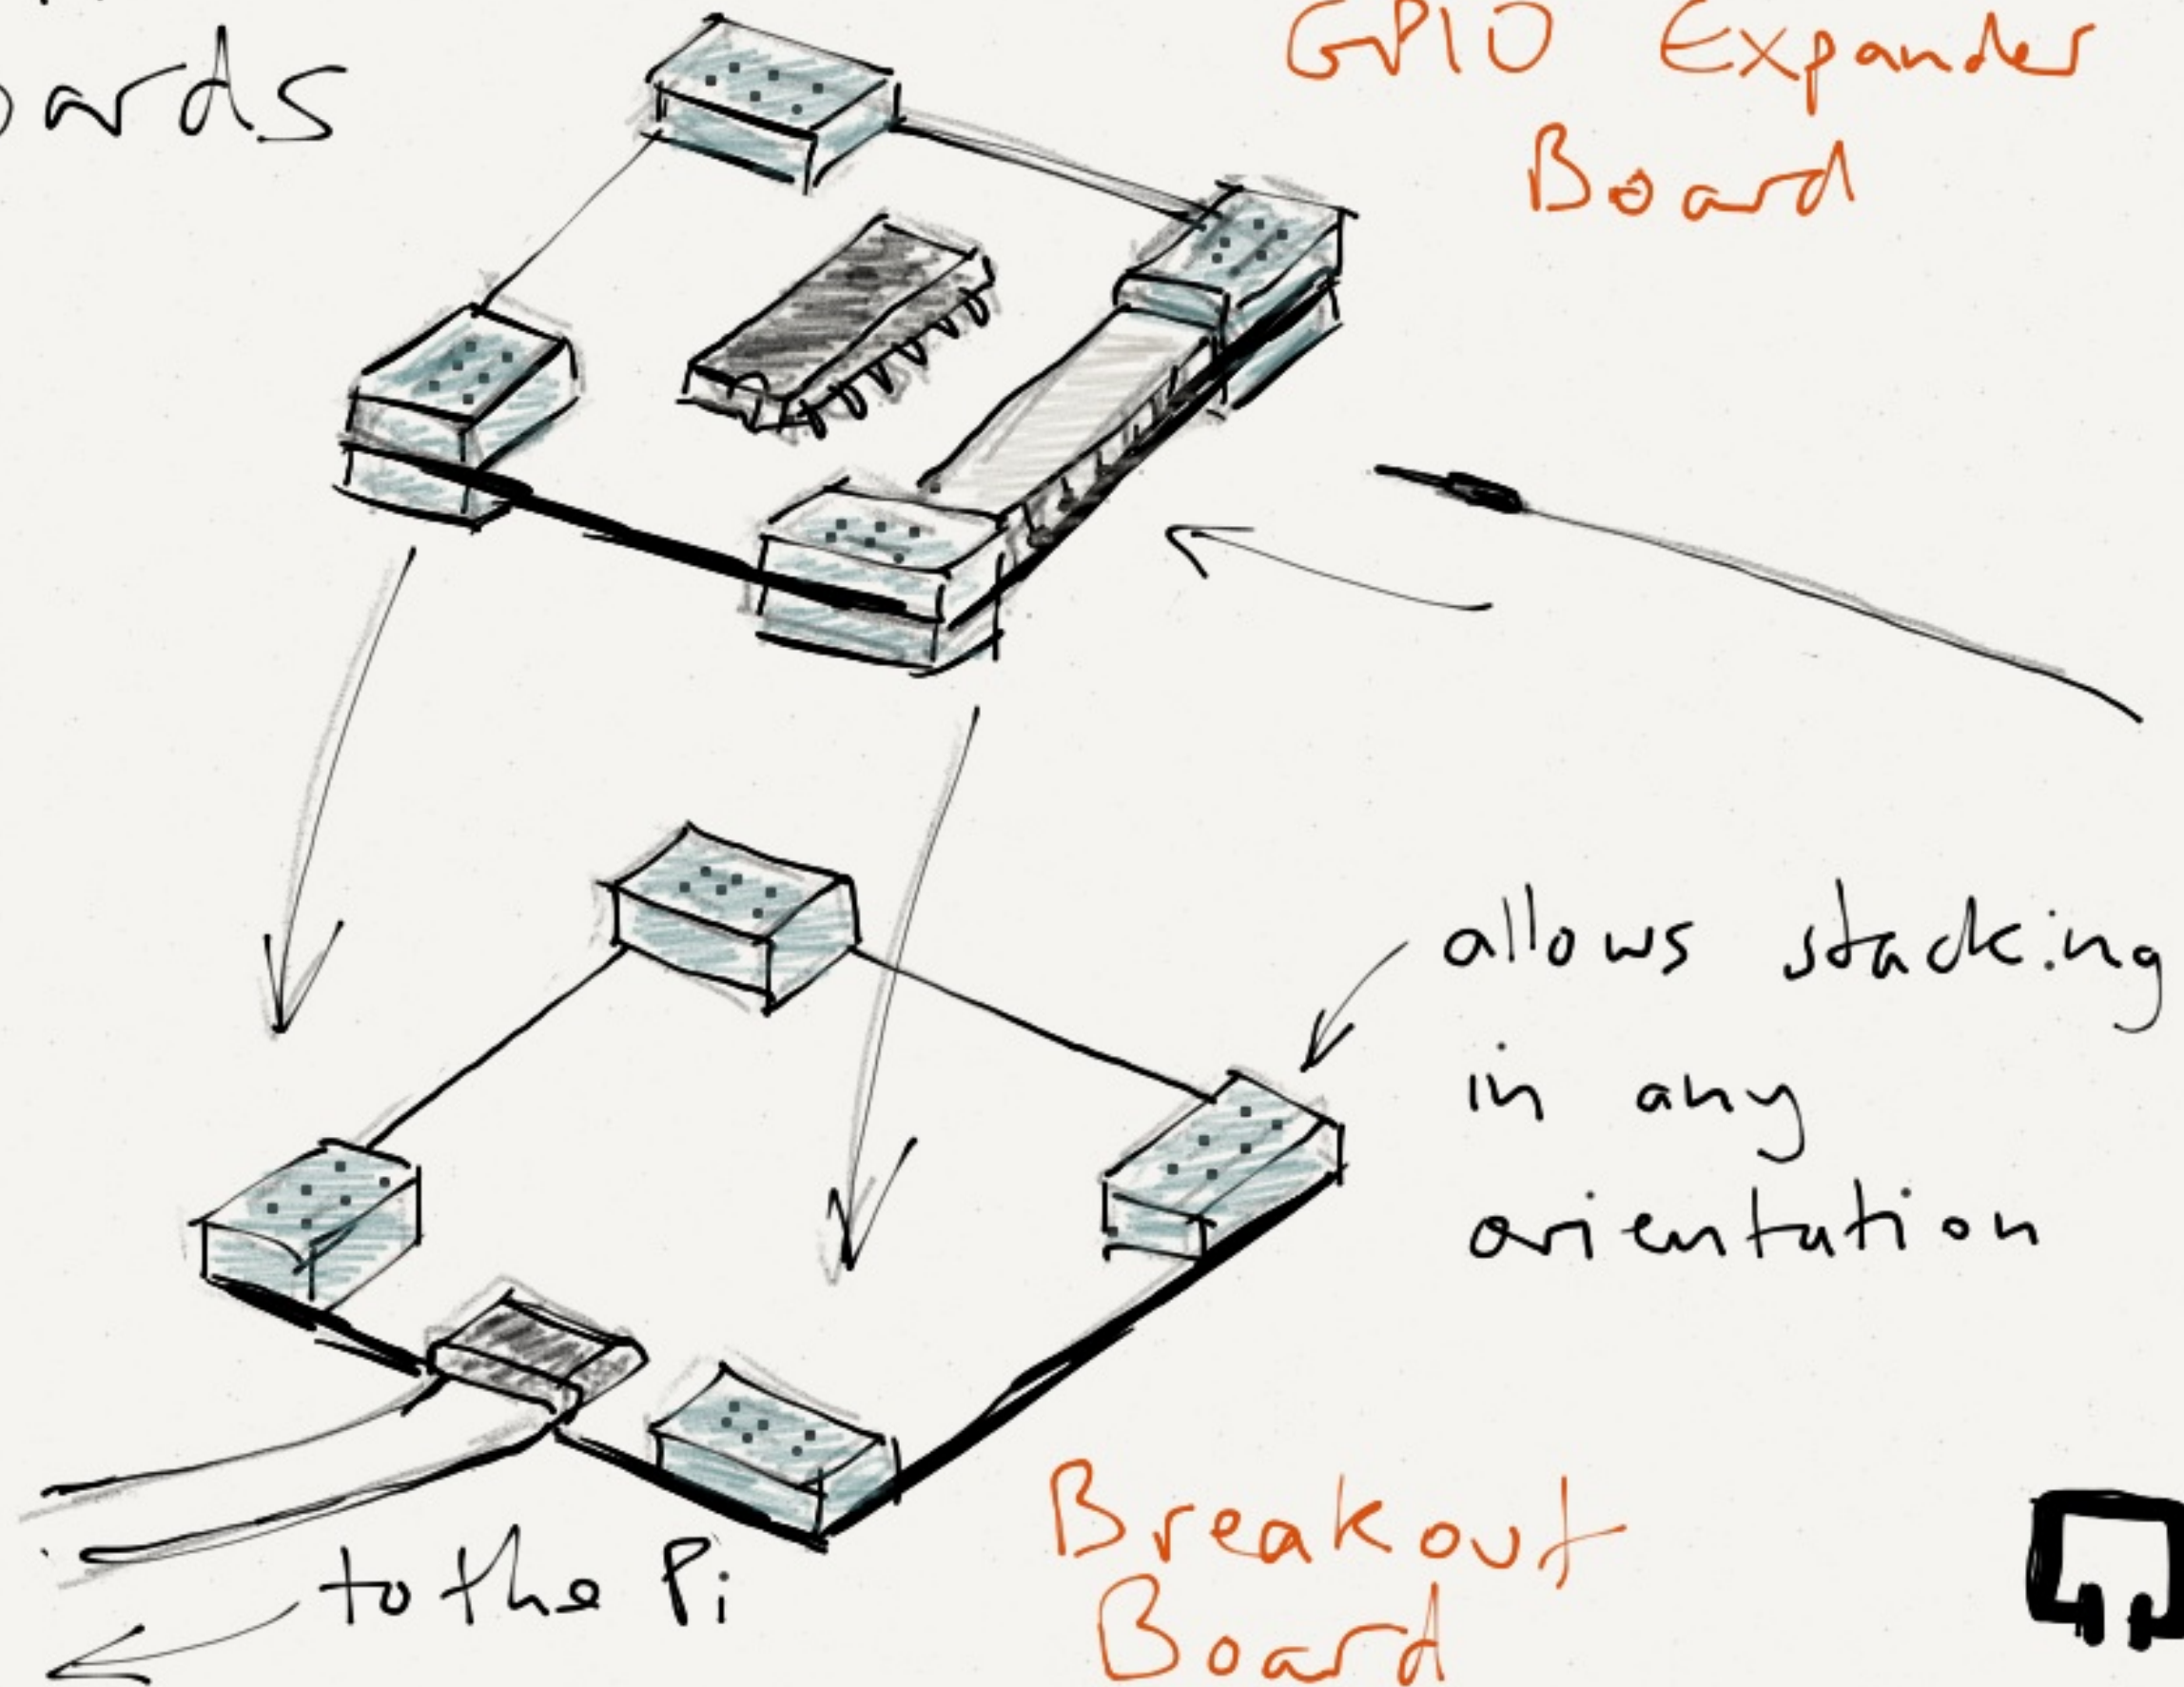 GPIO Expander
Board
allows stacking
in any
orientation
to the Pi
Breakout
Board